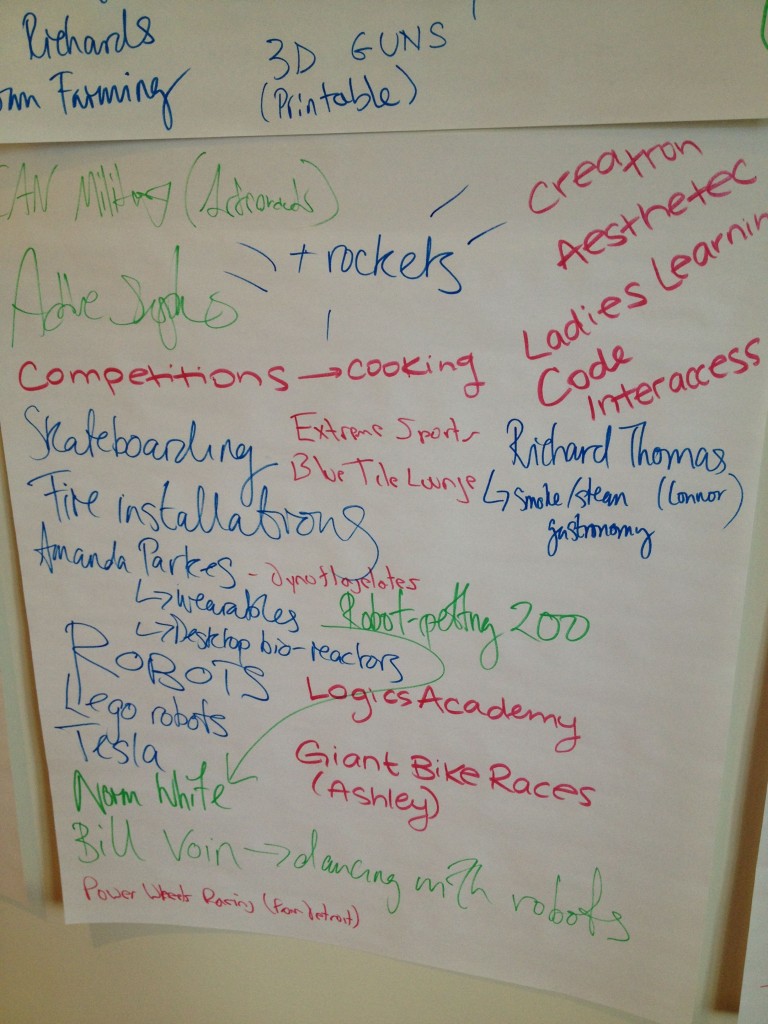 Richards
Farming
3D GUNS
(Printable)
CAN Military
+ rockets
Creatron
Aesthetec
Ladies Learnin
Code
Interaccess
Competitions → cooking
Skateboarding
Extreme Sports
Blue Tile Lounge
Richard Thomas
↳ smoke/steam (Connor)
gastronomy
Fire installations
Amanda Parkes - dynoflagelates
↳ wearables
↳ Desktop bio-reactors
Robot-petting zoo
ROBOTS
Lego robots
Tesla
Logics Academy
Giant Bike Races
(Ashley)
Norm White
Bill Voin → dancing with robots
Power Wheels Racing (from Detroit)